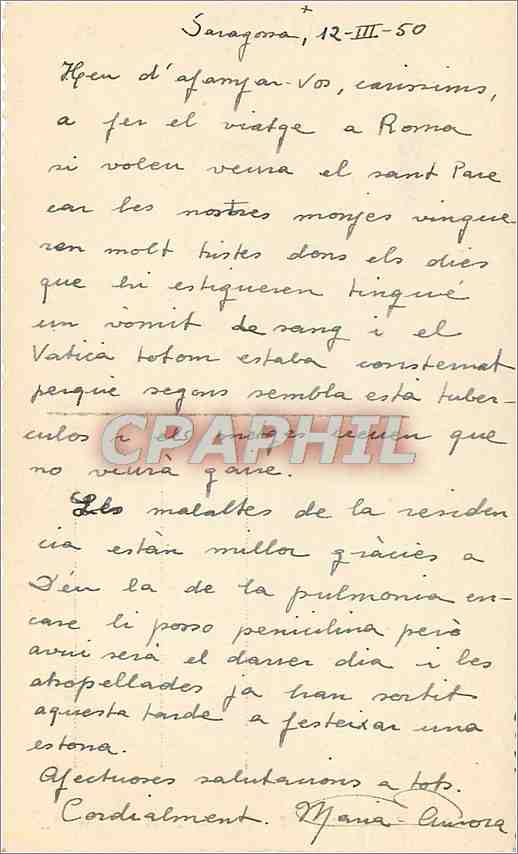 +
Saragossa, 12-III-50
Heu d'afanyar-vos, caríssims,
a fer el viatge a Roma
si voleu veura el sant Pare
car les nostres monjes vingue
ren molt tristes dons els dies
que hi estigueren tingué
un vòmit de sang i el
Vaticà totom estaba consternat
perquè segons sembla està tuber-
culos i els metges veuen que
no viurà gaire.
Les malaltes de la residen
cia estàn millor gràcies a
Déu la de la pulmonia en-
care li posso penicilina però
avui serà el darrer dia i les
atropellades ja han sortit
aquesta tarde a festeixar una
estona.
Afectuoses salutacions a tots.
Cordialment. Maria-Aurora
CPAPHIL